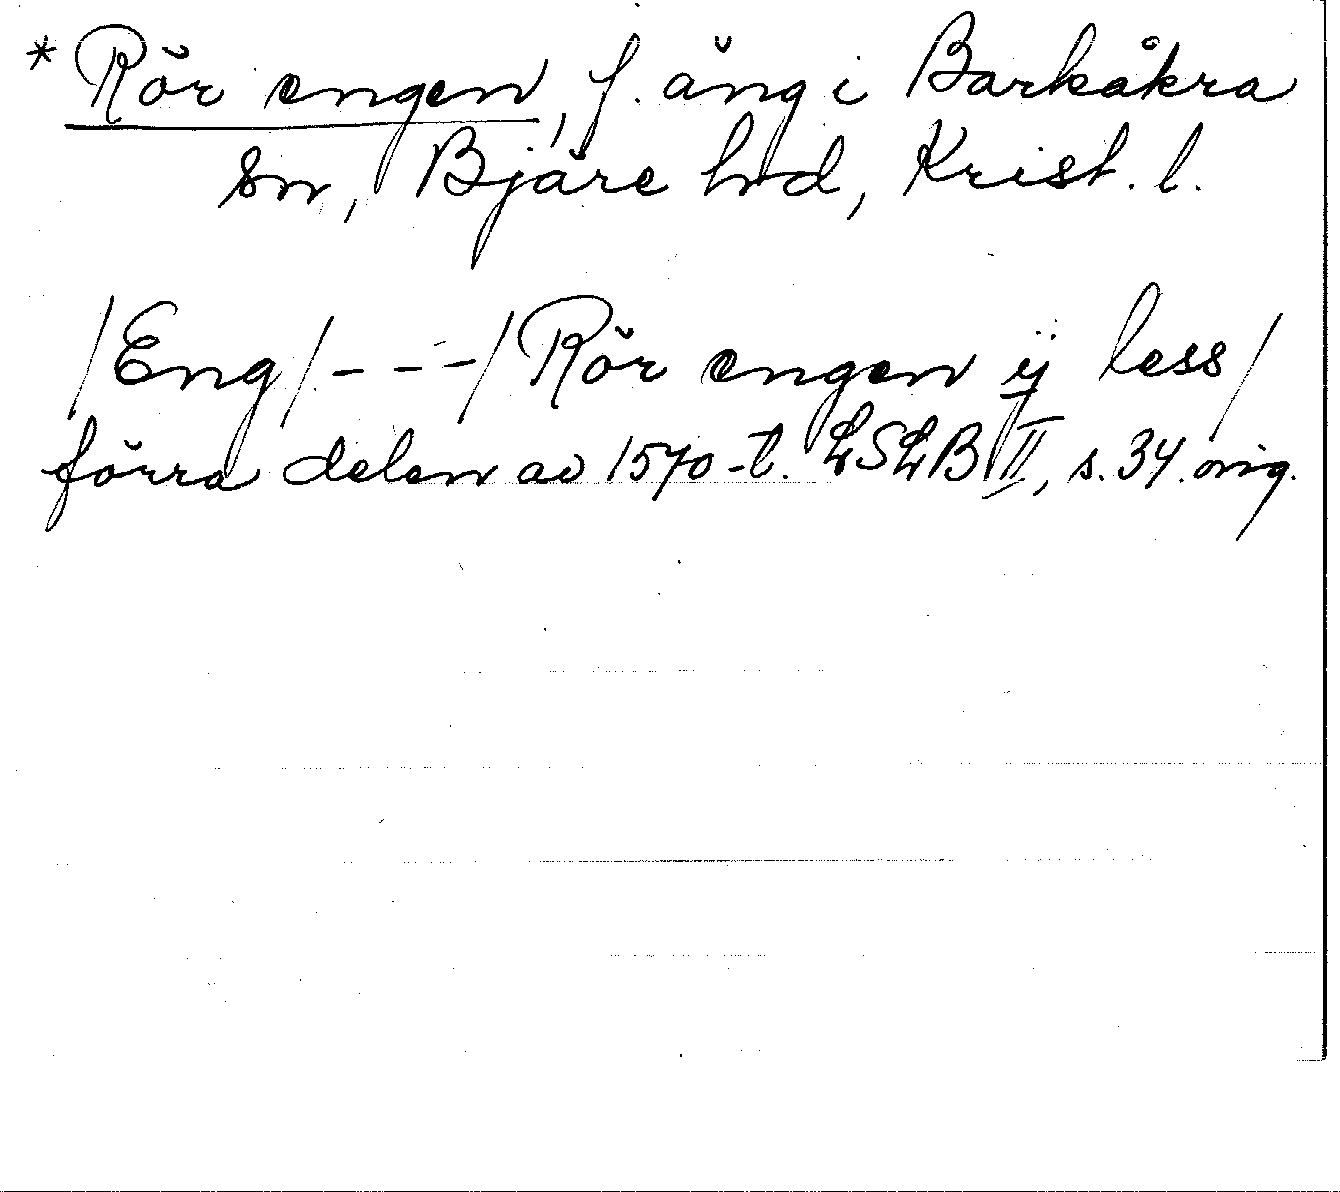 * Rör engen, f. äng i Barkåkra
sn, Bjäre hd, Krist. l.
/Eng/ - - - / Rör engen ij less/
förra delen av 1570-t. LSLB II, s. 34. orig.